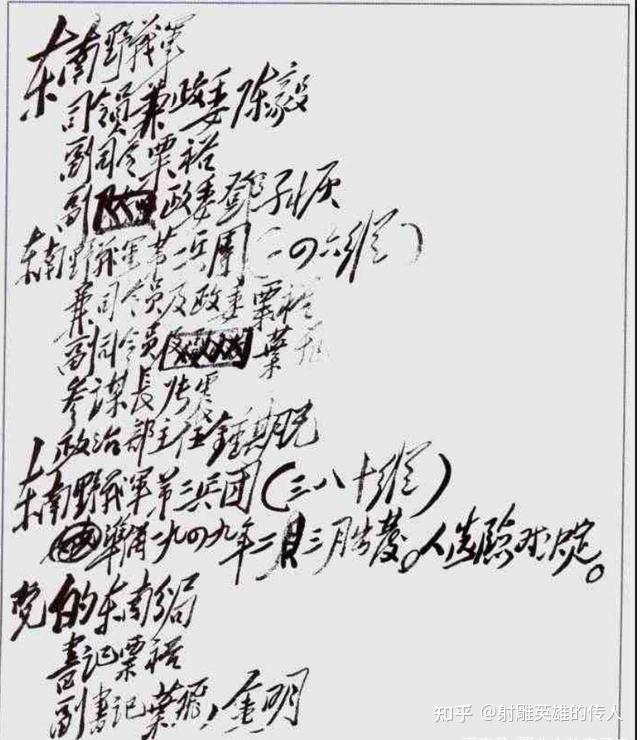 东南野战军
司令员兼政委陈毅
副司令粟裕
副政委邓子恢
东南野战军第二兵团(一四六纵)
兼司令员及政委粟裕
副司令员叶飞
参谋长张震
政治部主任钟期光
东南野战军第三兵团(三八十纵)
准备一九四九年二月三月出发。人选临时决定。
党的东南分局
书记粟裕
副书记叶飞、金明
知乎 @射雕英雄的传人